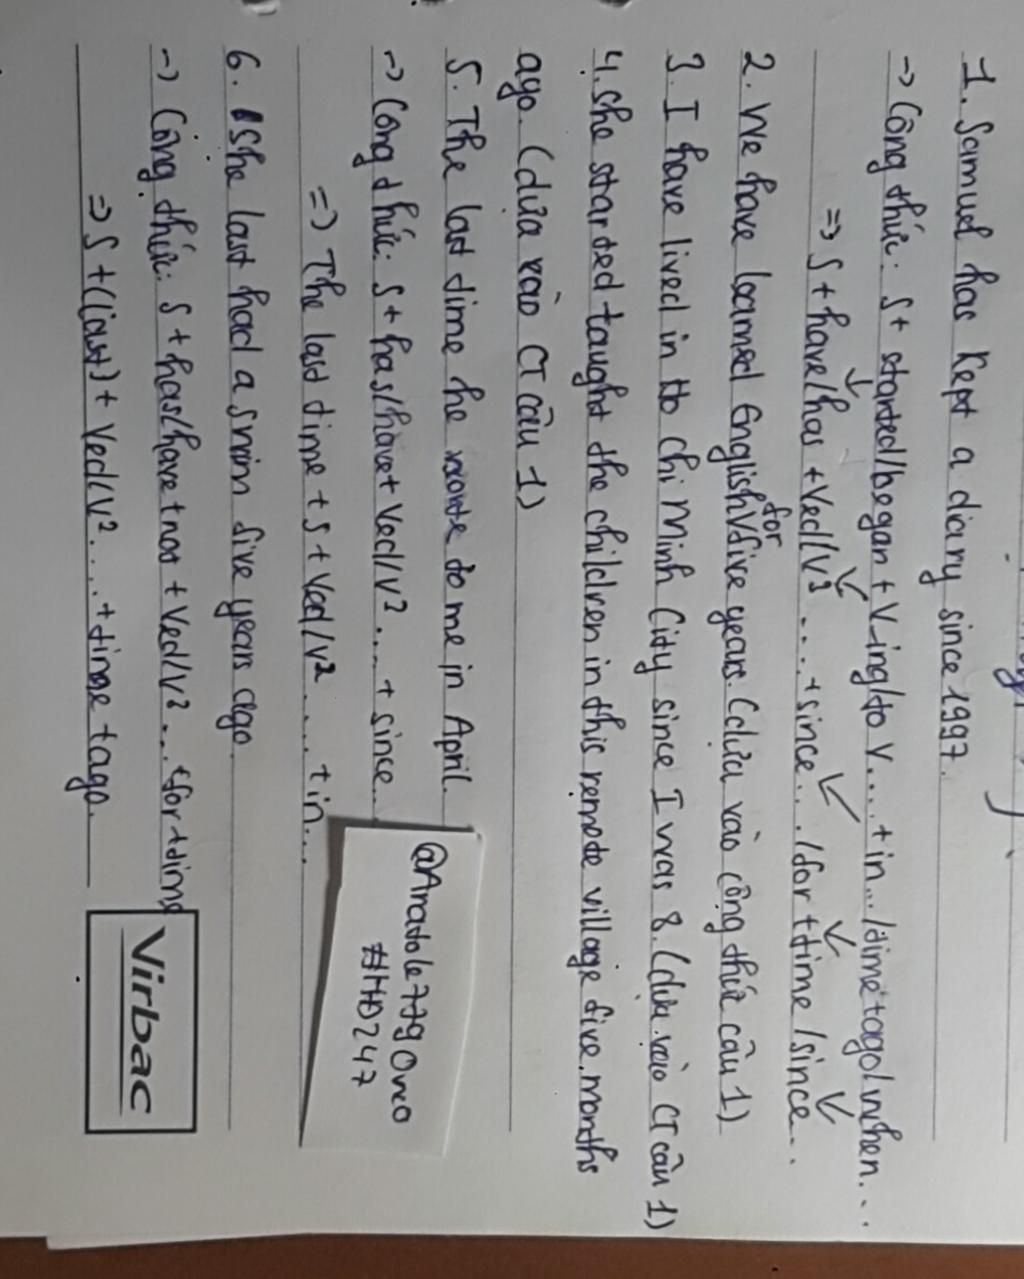 1. Samuel has kept a diary since 1997.
-> Công thức: S + started/began + V-ing/to V.... + in.../time + ago/when...
=> S + have/has + Ved/V3.... + since.../for + time/since...
2. We have learned English √ five years. (dựa vào công thức câu 1)
for
3. I have lived in Ho Chi Minh City since I was 8. (dựa vào CT câu 1)
4. She started taught the children in this remote village five months
ago. (dựa vào CT câu 1)
5. The last time he wrote to me in April.
-> Công thức: S + has/have + Ved/V2.... + since...
=> The last time + S + Ved/V2.... + in...
6. She last had a swim five years ago.
-> Công thức: S + has/have + not + Ved/V2... + for + time
=> S + (last) + Ved/V2.... + time + ago.
@Aratole77gOnco
#HD247
Virbac